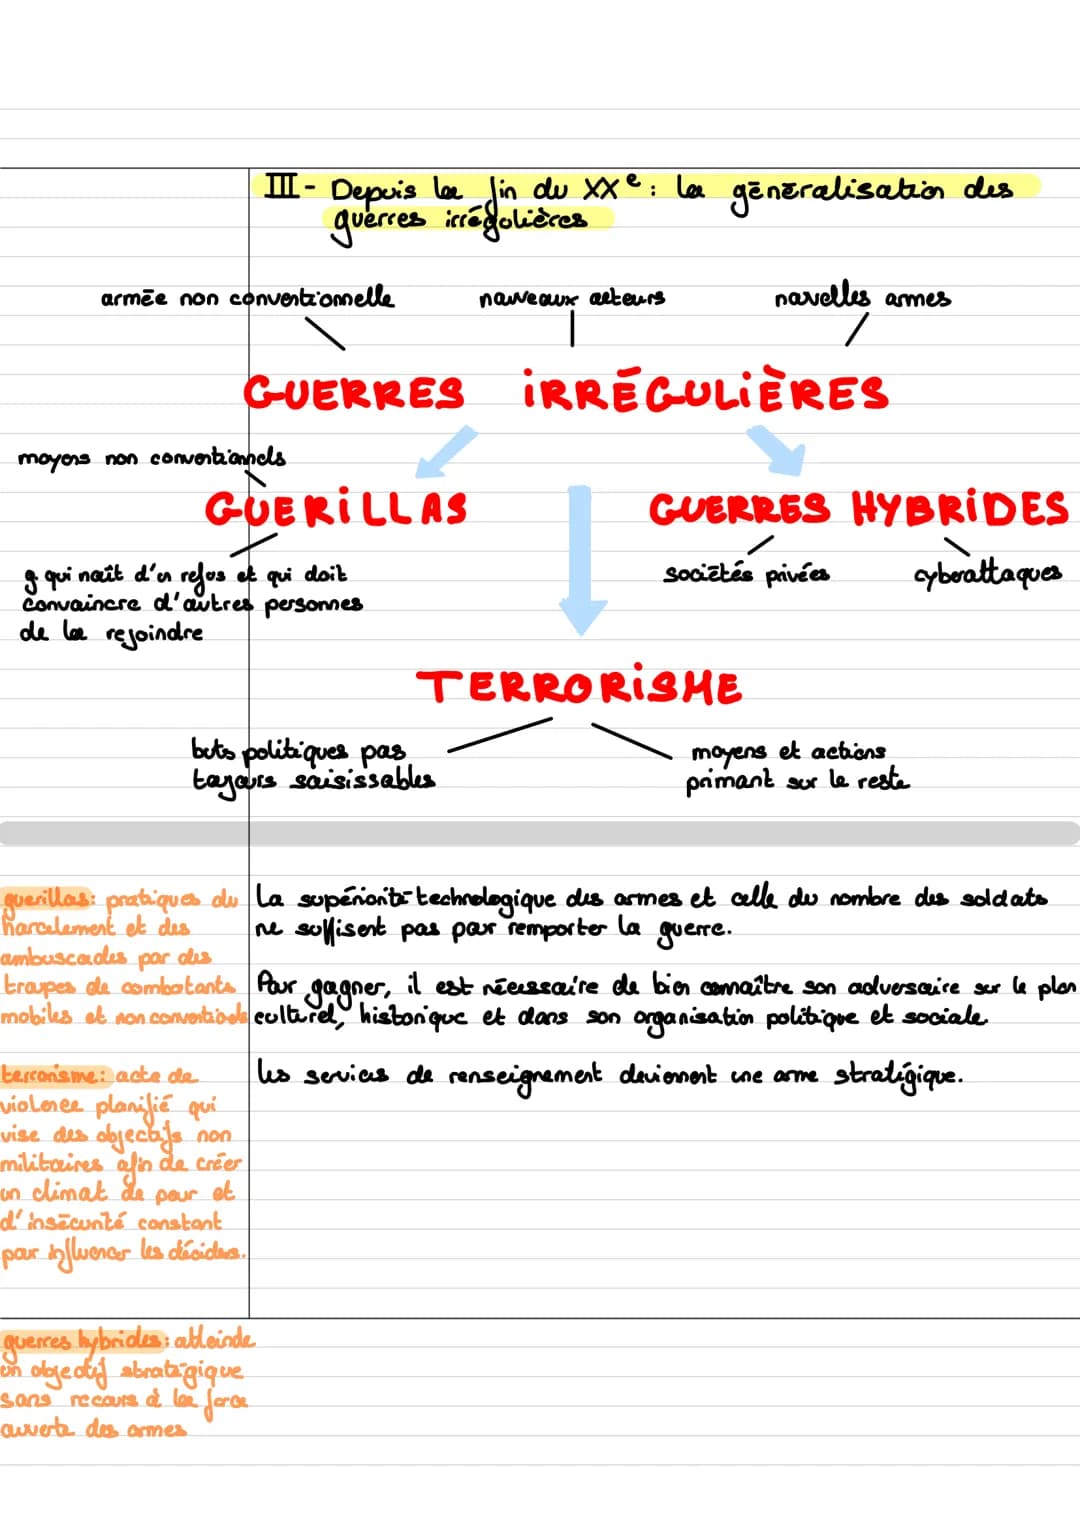 III - Depuis la fin du XXe : la généralisation des
guerres irrégulières
armée non conventionnelle
nouveaux acteurs
nouvelles armes
GUERRES IRRÉGULIÈRES
moyens non conventionnels
GUERILLAS
GUERRES HYBRIDES
g. qui naît d'un refus et qui doit
convaincre d'autres personnes
de la rejoindre
sociétés privées
cyberattaques
TERRORISME
buts politiques pas
toujours saisissables
moyens et actions
primant sur le reste
guerillas: pratiques du
harcelement et des
ambuscades par des
troupes de combatants
mobiles et non conventionels
terrorisme: acte de
violence planifié qui
vise des objectifs non
militaires afin de créer
un climat de peur et
d'insécurité constant
pour influencer les décideurs.
guerres hybrides: atteinde
un objectif stratégique
sans recours à la force
ouverte des armes
La supériorité technologique des armes et celle du nombre des soldats
ne suffisent pas pour remporter la guerre.
Pour gagner, il est nécessaire de bien connaître son adversaire sur le plan
culturel, historique et dans son organisation politique et sociale.
Les services de renseignement deviennent une arme stratégique.